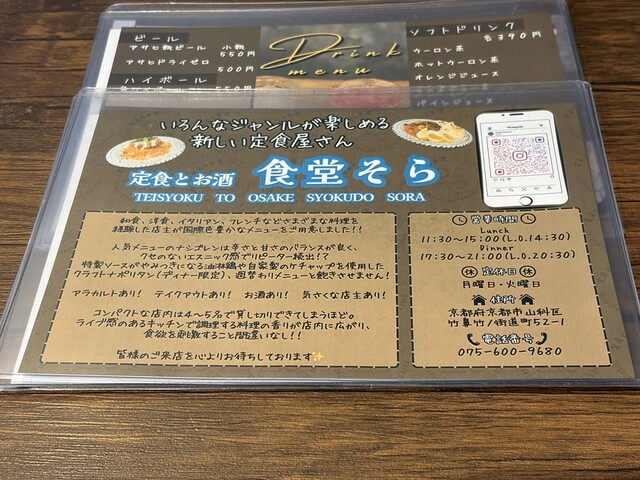 ビール
アサヒ瓶ビール 小瓶
550円
アサヒドライゼロ
500円
ハイボール
Drink
menu
ソフトドリンク
各390円
ウーロン茶
ホットウーロン茶
オレンジジュース
パインジュース
いろんなジャンルが楽しめる
新しい定食屋さん
定食とお酒 食堂そら
TEISYOKU TO OSAKE SYOKUDO SORA
和食、洋食、イタリアン、フレンチなどさまざまな料理を
経験した店主が国際色豊かなメニューをご用意しました!!
人気メニューのナシゴレンは辛さと甘さのバランスが良く、
クセのないエスニック感でリピーター続出!?
特製ソースがやみつきになる油淋鶏や自家製のケチャップを使用した
クラフトナポリタン(ディナー限定)、週替わりメニューと飽きさせません!
アラカルトあり! テイクアウトあり! お酒あり! 気さくな店主あり!
コンパクトな店内は4~5名で貸し切りできてしまうほど。
ライブ感のあるキッチンで調理する料理の香りが店内に広がり、
食欲を刺激すること間違いなし!!
皆様のご来店を心よりお待ちしております✨
営業時間
Lunch
11:30~15:00(L.O.14:30)
Dinner
17:30~21:00(L.O.20:30)
休 定休日 休
月曜日・火曜日
住所
京都府京都市山科区
竹鼻竹ノ街道町52-1
電話番号
075-600-9680